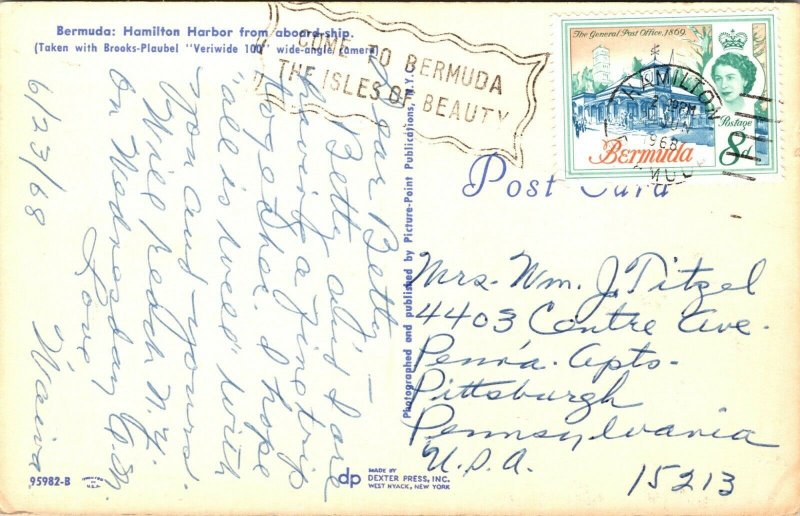 Bermuda: Hamilton Harbor from aboard ship.
(Taken with Brooks-Plaubel "Veriwide 100" wide-angle camera)
COME TO BERMUDA
THE ISLES OF BEAUTY
The General Post Office, 1869.
HAMILTON
PM
1968
Postage
Bermuda
8d
Post Card
6/23/68
Dear Betty—
Betty and I are
having a fine trip
together. I hope
"all is well" with
you and yours.
Will reach N.Y.
on Wednesday
Love
Photographed and published by Picture-Point Publications, N.Y.
Mrs. Wm. J. Titzel
4403 Centre Ave.
Penn'a. Apts.
Pittsburgh
Pennsylvania
U.S.A.
15213
95982-B
dp
MADE BY
DEXTER PRESS, INC.
WEST NYACK, NEW YORK